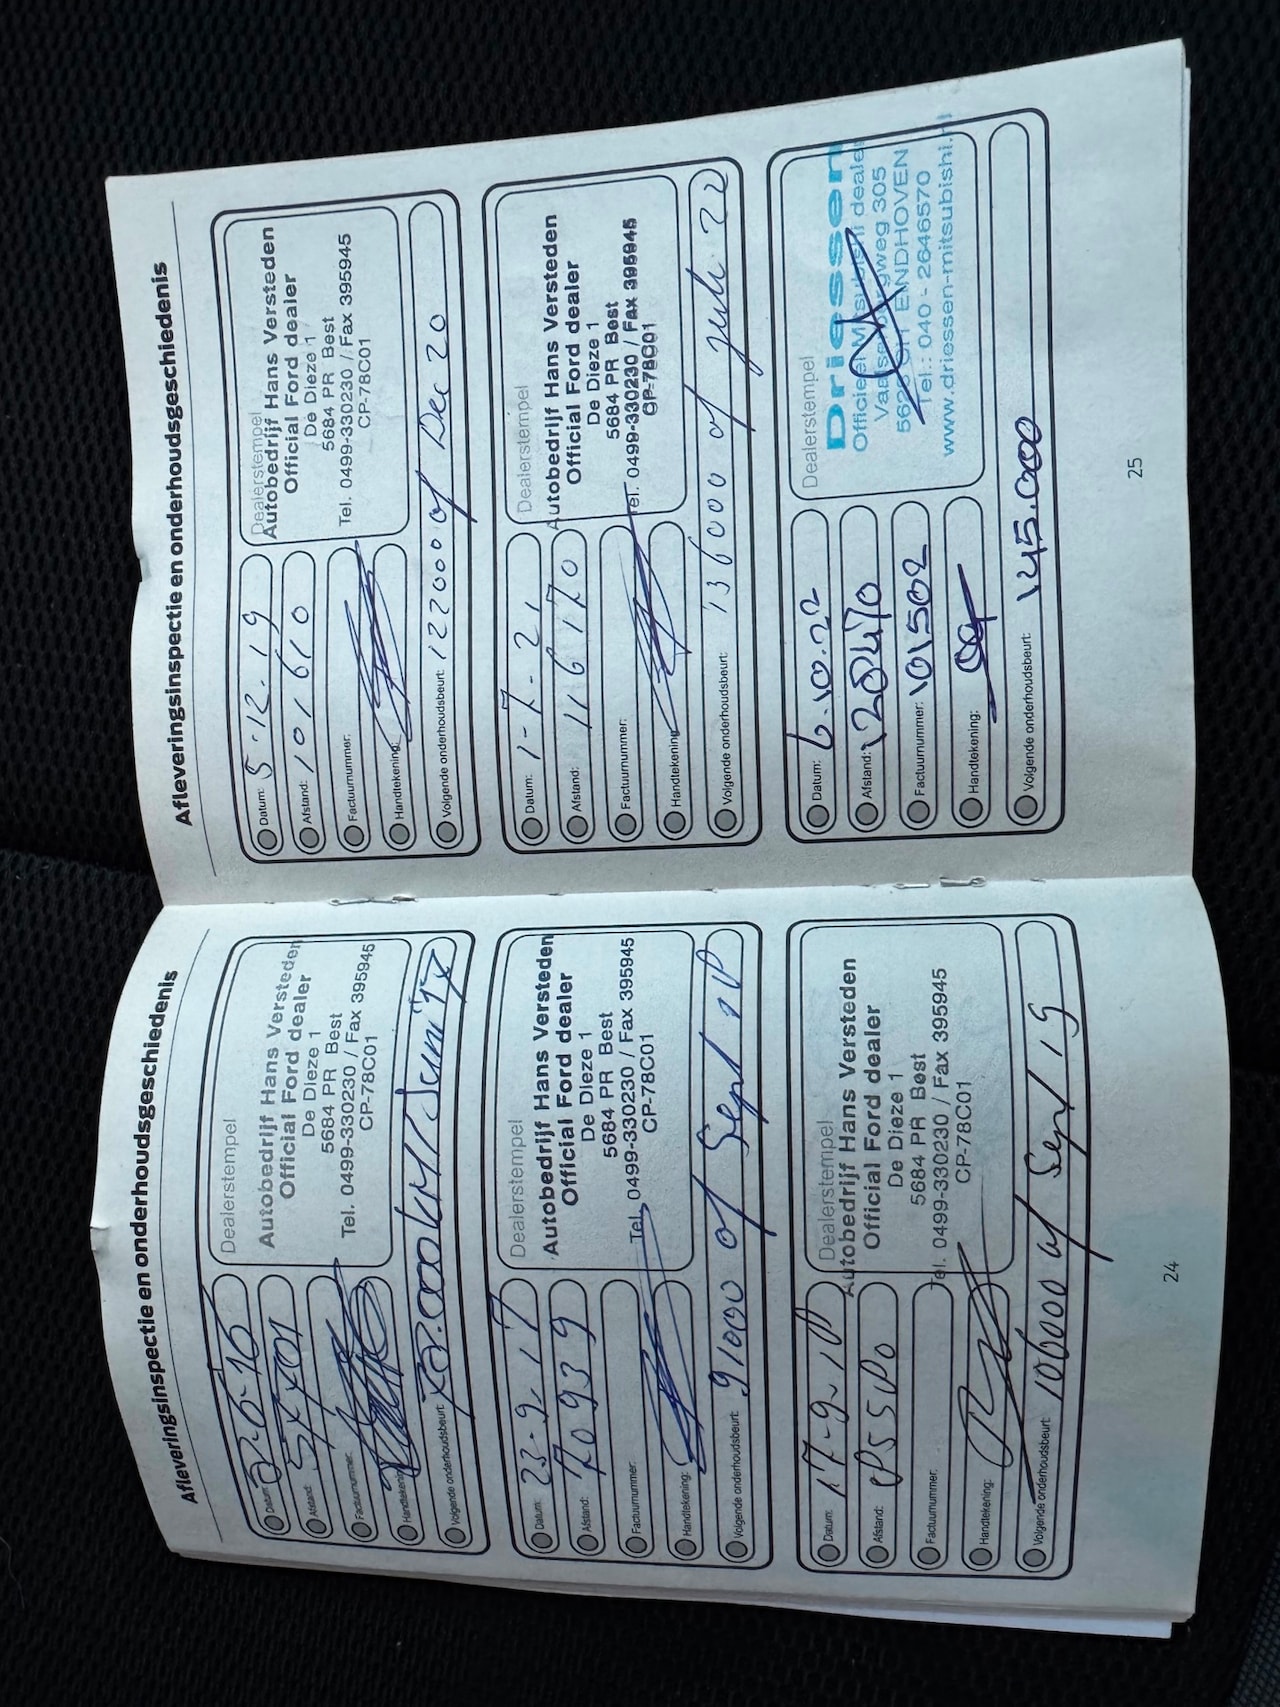 Afleveringsinspectie en onderhoudsgeschiedenis
Datum:
Afstand:
Factuurnummer:
Handtekening:
Volgende onderhoudsbeurt:
Dealerstempel
Autobedrijf Hans Versteden
Official Ford dealer
De Dieze 1
5684 PR Best
Tel. 0499-330230 / Fax 395945
CP-78C01
Datum: 23-9-17
Afstand: 70939
Factuurnummer:
Handtekening:
Volgende onderhoudsbeurt: 91000 of Sept 18
Dealerstempel
Autobedrijf Hans Versteden
Official Ford dealer
De Dieze 1
5684 PR Best
Tel. 0499-330230 / Fax 395945
CP-78C01
Datum: 17-9-18
Afstand: 85580
Factuurnummer:
Handtekening:
Volgende onderhoudsbeurt: 106000 of Sept 19
Dealerstempel
Autobedrijf Hans Versteden
Official Ford dealer
De Dieze 1
5684 PR Best
Tel. 0499-330230 / Fax 395945
CP-78C01
24
Afleveringsinspectie en onderhoudsgeschiedenis
Datum: 5-12-19
Afstand: 101610
Factuurnummer:
Handtekening:
Volgende onderhoudsbeurt: 122000 of Dec 20
Dealerstempel
Autobedrijf Hans Versteden
Official Ford dealer
De Dieze 1
5684 PR Best
Tel. 0499-330230 / Fax 395945
CP-78C01
Datum: 1-7-21
Afstand: 116170
Factuurnummer:
Handtekening:
Volgende onderhoudsbeurt: 136000 of juli 22
Dealerstempel
Autobedrijf Hans Versteden
Official Ford dealer
De Dieze 1
5684 PR Best
Tel. 0499-330230 / Fax 395945
CP-78C01
Datum: 6.10.22
Afstand: 128470
Factuurnummer: 101502
Handtekening:
Volgende onderhoudsbeurt: 145.000
Dealerstempel
Driessen
Officieel Mitsubishi dealer
305
EINDHOVEN
Tel.: 040 - 2646570
www.driessen-mitsubishi.nl
25